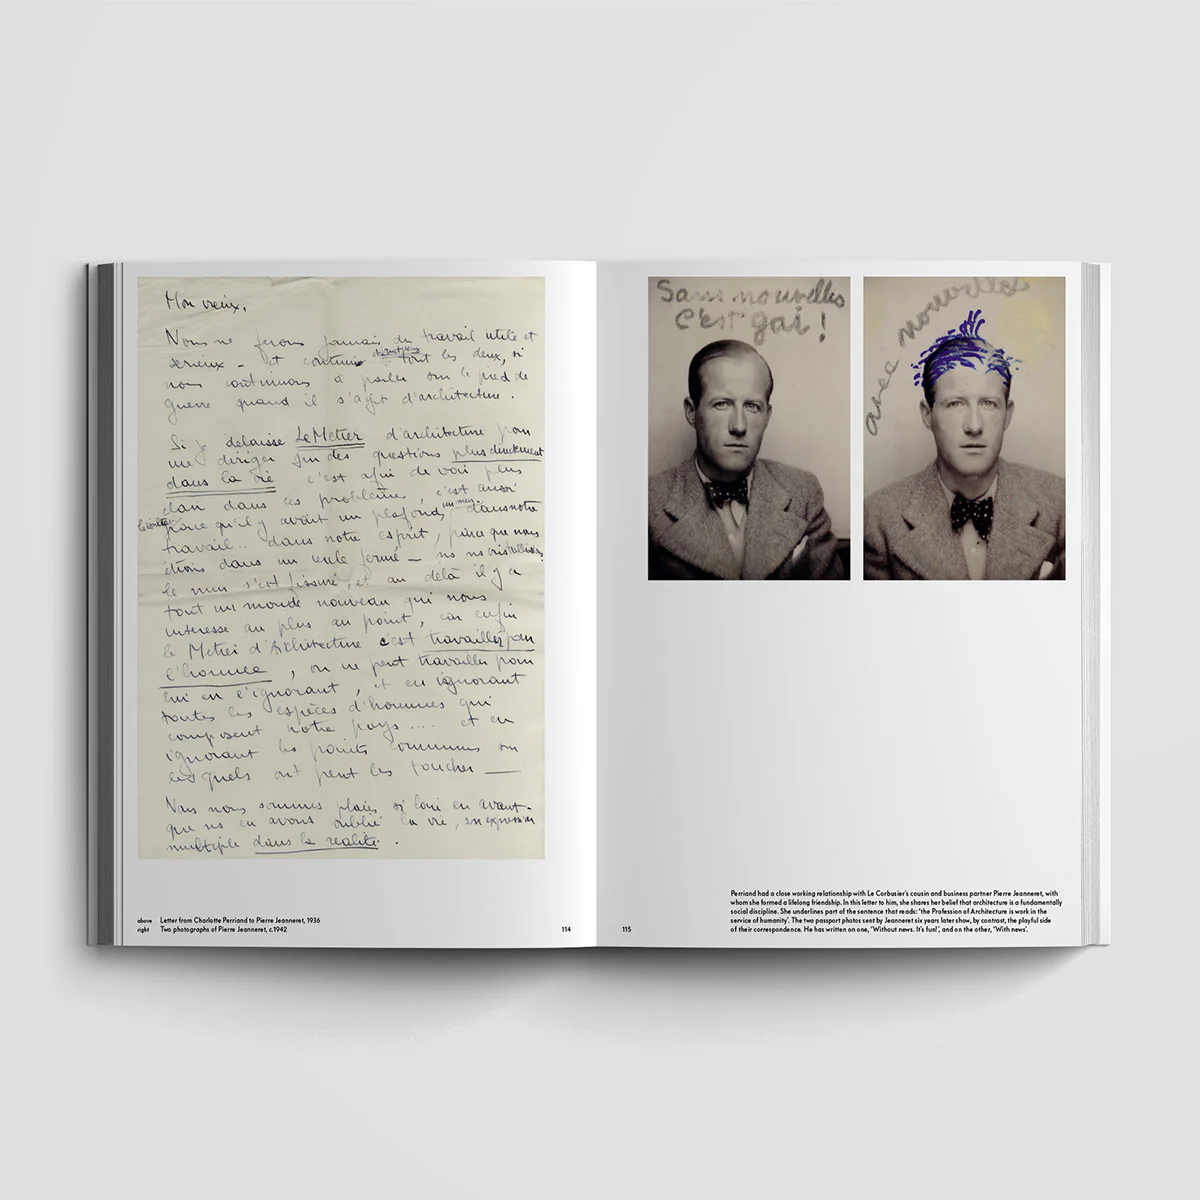 Mon vieux.
Nous ne ferons jamais du travail utile et
serieux - et continu tout les deux, si
nous continuons à parler sur le pied de
guerre quand il s'agit d'architecture.
Si je delaisse Le Metier d'architecture pour
me diriger sur des questions plus directement
dans la vie c'est afin de voir plus
clair dans ces problème, c'est aussi
parce qu'il y avait un plafond, un mur, dans notre
travail.. dans notre esprit, parce que nous
étions dans un cercle fermé -
le mur s'est fissuré, et au delà il y a
tout un monde nouveau qui nous
interesse au plus au point, car enfin
le Metier d'Architecture c'est travailler pour
l'homme, on ne peut travailler pour
lui en l'ignorant, et en ignorant
toutes les espèces d'hommes qui
composent notre pays .... et en
ignorant les points communs sur
lesquels on peut les toucher —
Nous nous sommes placés si loin en avant-
que ns en avons oublié la vie, son expression
multiple dans la realité.
above Letter from Charlotte Perriand to Pierre Jeanneret, 1936
right Two photographs of Pierre Jeanneret, c.1942
114
Sans nouvelles
c'est gai !
avec nouvelles
115
Perriand had a close working relationship with Le Corbusier's cousin and business partner Pierre Jeanneret, with
whom she formed a lifelong friendship. In this letter to him, she shares her belief that architecture is a fundamentally
social discipline. She underlines part of the sentence that reads: 'the Profession of Architecture is work in the
service of humanity'. The two passport photos sent by Jeanneret six years later show, by contrast, the playful side
of their correspondence. He has written on one, 'Without news. It's fun!', and on the other, 'With news'.